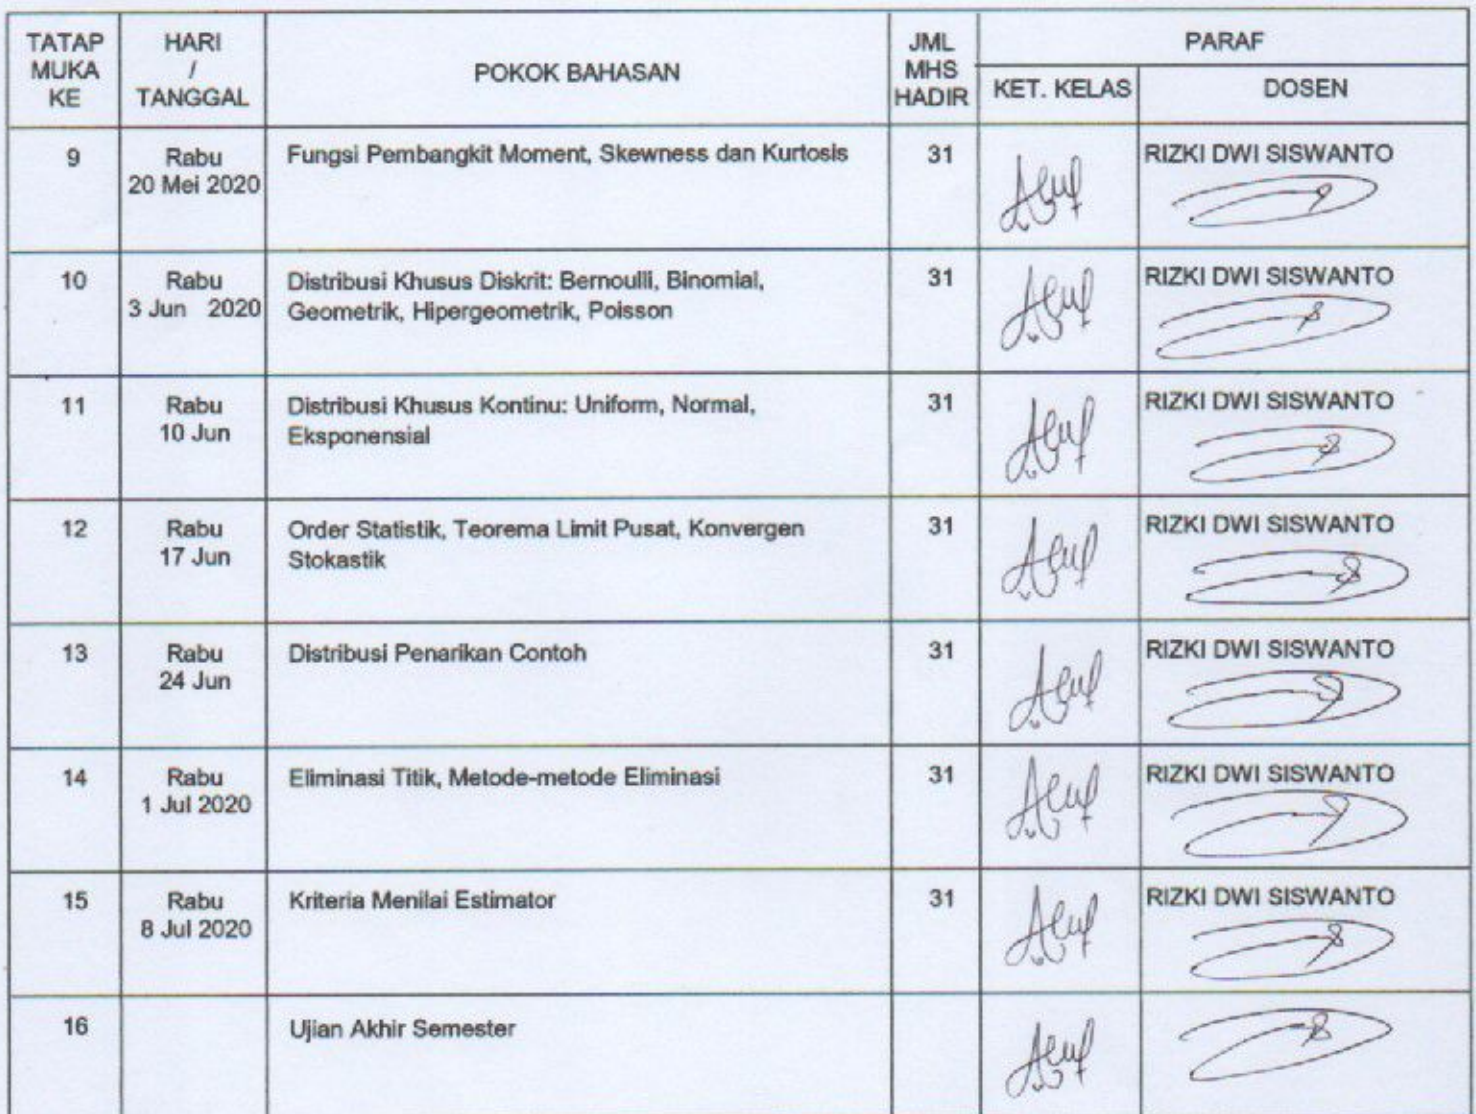 TATAP MUKA KE
HARI / TANGGAL
POKOK BAHASAN
JML MHS HADIR
PARAF
KET. KELAS
DOSEN
9
Rabu
20 Mei 2020
Fungsi Pembangkit Moment, Skewness dan Kurtosis
31
RIZKI DWI SISWANTO
10
Rabu
3 Jun 2020
Distribusi Khusus Diskrit: Bernoulli, Binomial,
Geometrik, Hipergeometrik, Poisson
31
RIZKI DWI SISWANTO
11
Rabu
10 Jun
Distribusi Khusus Kontinu: Uniform, Normal,
Eksponensial
31
RIZKI DWI SISWANTO
12
Rabu
17 Jun
Order Statistik, Teorema Limit Pusat, Konvergen
Stokastik
31
RIZKI DWI SISWANTO
13
Rabu
24 Jun
Distribusi Penarikan Contoh
31
RIZKI DWI SISWANTO
14
Rabu
1 Jul 2020
Eliminasi Titik, Metode-metode Eliminasi
31
RIZKI DWI SISWANTO
15
Rabu
8 Jul 2020
Kriteria Menilai Estimator
31
RIZKI DWI SISWANTO
16
Ujian Akhir Semester